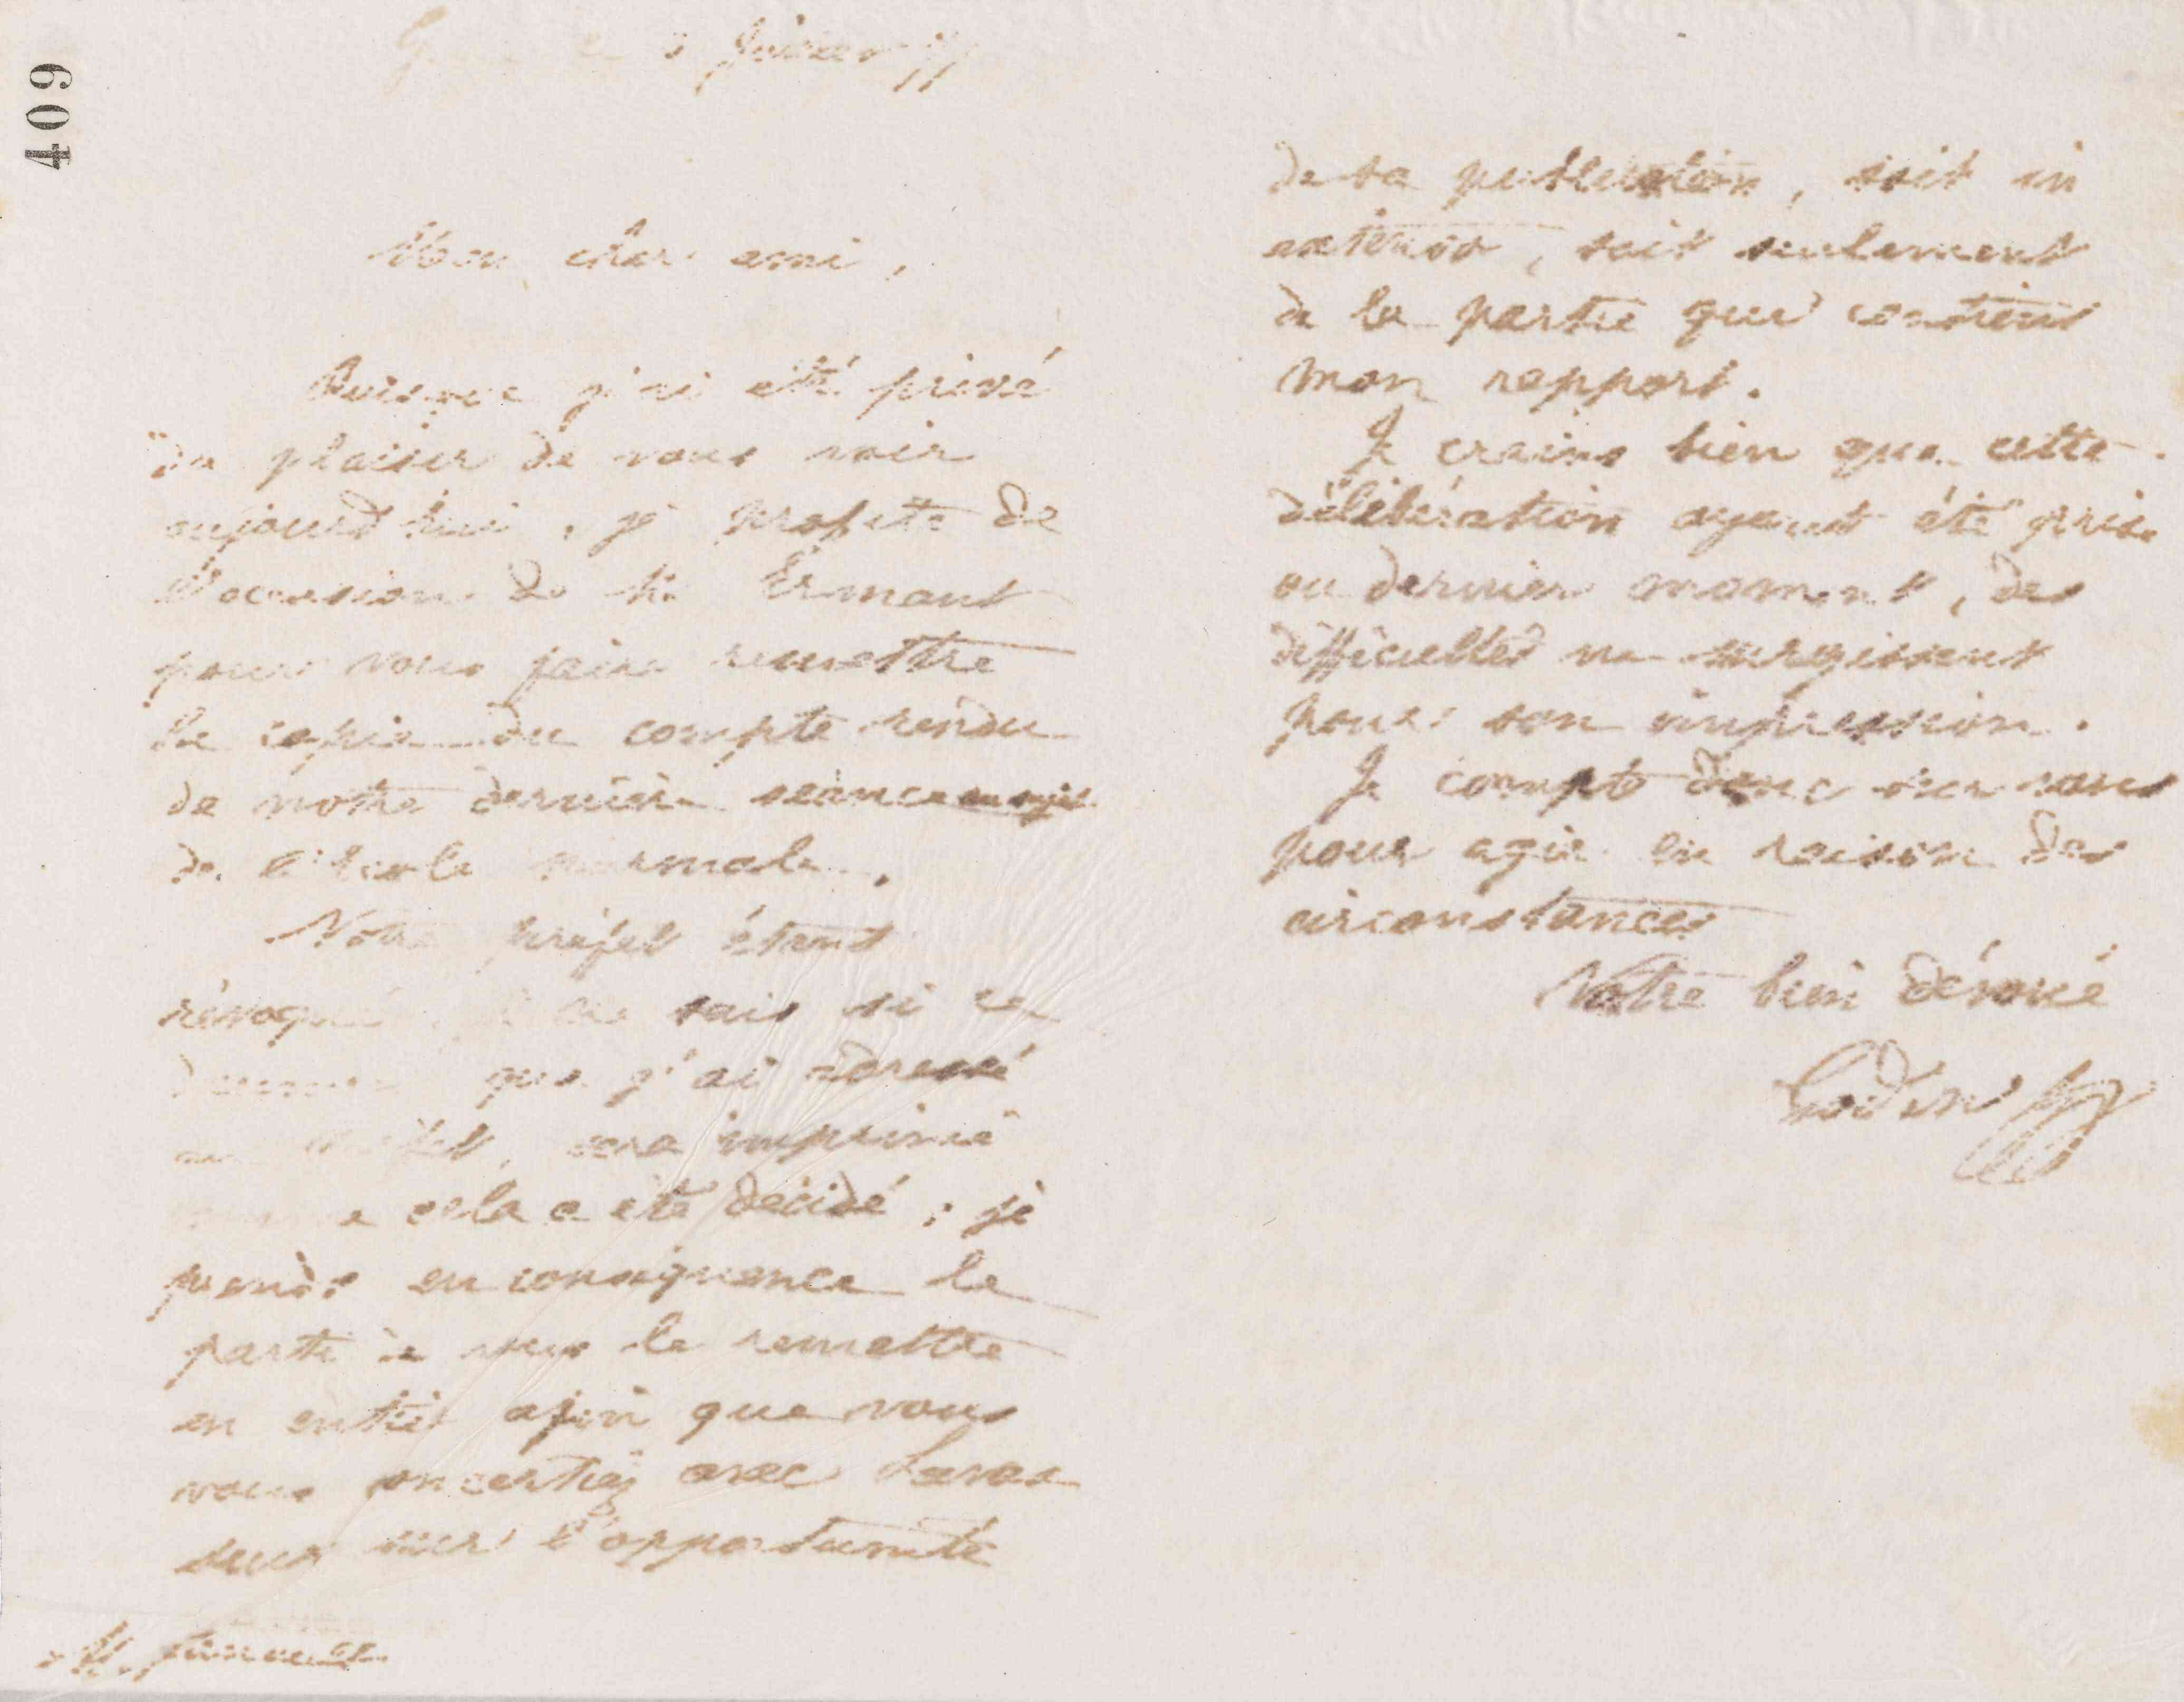 409
G le 5 Janvier 77
Mon cher ami,
Puisque j'ai été privé
du plaisir de vous voir
aujourd'hui, je profite de
l'occasion de M. Ermant
pour vous faire remettre
la copie du compte rendu
de notre dernière séance au sujet
de l'école normale.
Notre préfet étant
révoqué, je ne sais si ce
que j'ai adressé
au Préfet, sera imprimé
comme cela a été décidé ; je
prends en conséquence le
parti de vous le remettre
en entier afin que vous
vous concertiez avec Leras
seur sur l'opportunité
de sa publication, soit in
extenso, soit seulement
de la partie que contient
mon rapport.
Je crains bien que cette
délibération ayant été prise
au dernier moment, des
difficultés ne surgissent
pour son impression.
Je compte donc sur vous
pour agir en raison des
circonstances
Votre bien dévoué
Godin
M.